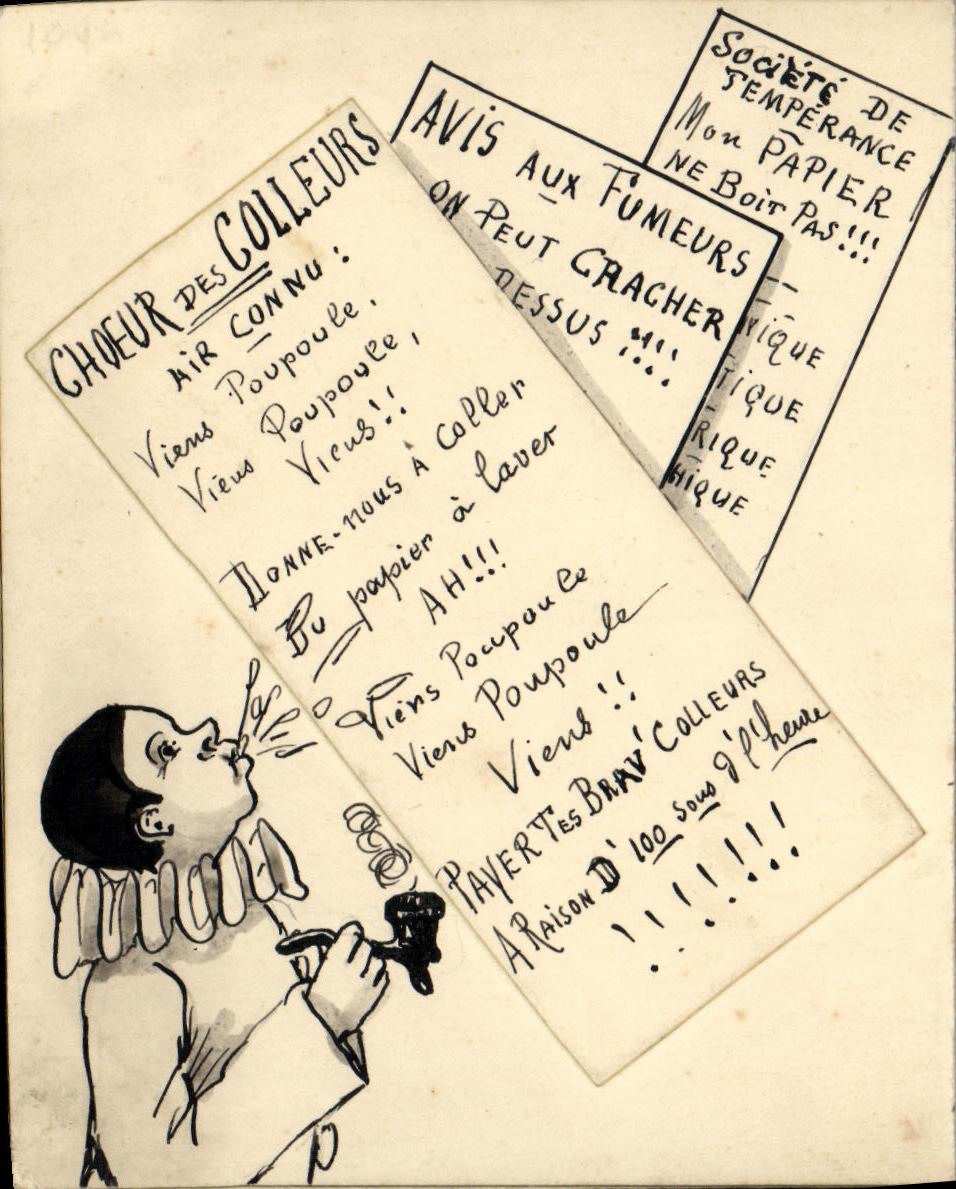 CHOEUR DES COLLEURS
AIR CONNU :
Viens Poupoule,
Viens Poupoule,
Viens!!
DONNE-nous À Coller
Du papier à laver
AH!!!
Viens Poupoule
Viens Poupoule
Viens!!
PAYER TES BRAV' COLLEURS
A RAISON D' 100 sous d'l'heure
! ! ! ! ! !
AVIS AUX FUMEURS
ON PEUT CRACHER
DESSUS !!!!
SOCIÉTÉ DE
TEMPÉRANCE
Mon PAPIER
NE BOIT PAS!!!
NIQUE
TIQUE
RIQUE
HIQUE